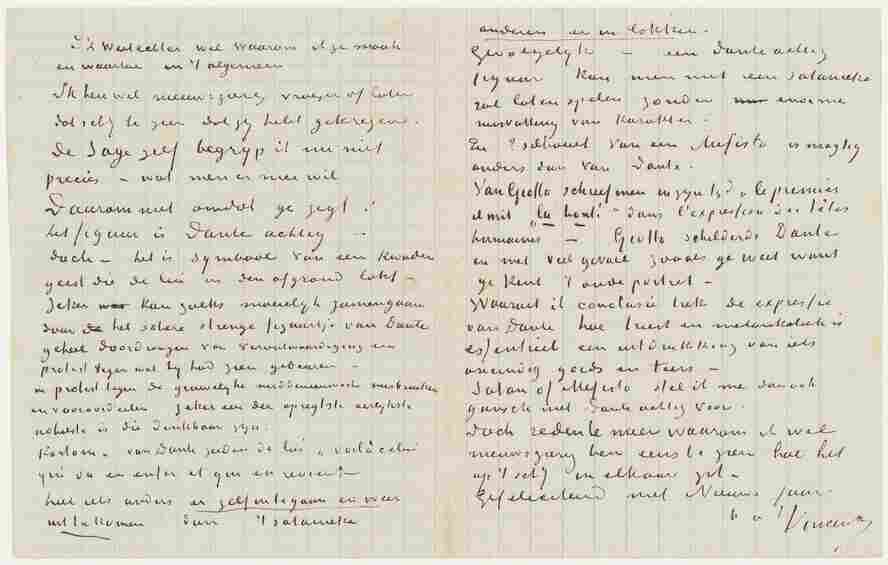 Ik Weet echter wel waarom ik ze maak
en waartoe in 't algemeen
Ik ben wel nieuwsgierig vroeger of later
dat schij te zien dat gij hebt gekregen.
De Sage zelf begryp ik nu niet
precies – wat men er mee wil
Daarom niet omdat ge zegt
het figuur is Dante achtig –
doch – het is symbool van een kwaden
geest die de lui in den afgrond lokt –
Zeker kan zulks moeielyk zamengaan
daar het sobere strenge figuurtje van Dante
geheel doordrongen van verontwaardiging en
protest tegen wat hy had zien gebeuren –
in protest tegen de gruwelyke middeneeuwsche misbruiken
en vooroordeelen zeker een der opregtste eerlykste
nobelste is die denkbaar zyn.
Enfin. van Dante zeiden de lui „voilà celui
qui va en enfer et qui en revient” –
heel iets anders er zelf in te gaan en weer
uit te komen dan 't satanieke
anderen er in lokken.
Gevolgelyk – een Dante achtig
figuur kan men niet een satanieke
rol laten spelen zonder enorme
misvatting van karakter.
En 't silhouet van een Mefisto is magtig
anders dan van Dante.
Van Giotto schreef men in zyn tyd „le premier
il mit „la bonté” dans l'expression des têtes
humaines – Giotto schilderde Dante
en met veel gevoel zooals ge weet want
ge kent 't oude portret –
Waaruit ik conclusie trek de expressie
van Dante hoe triest en melankoliek is
essentieel een uitdrukking van iets
oneindig goeds en teers –
Satan of Mefisto stel ik me dan ook
gansch niet Dante achtig voor.
Doch redente meer waarom ik wel
nieuwsgierig ben eens te zien hoe het
op 't schij in elkaar zit –
Gefeliciteerd met Nieuwe jaar.
t. à t. Vincent